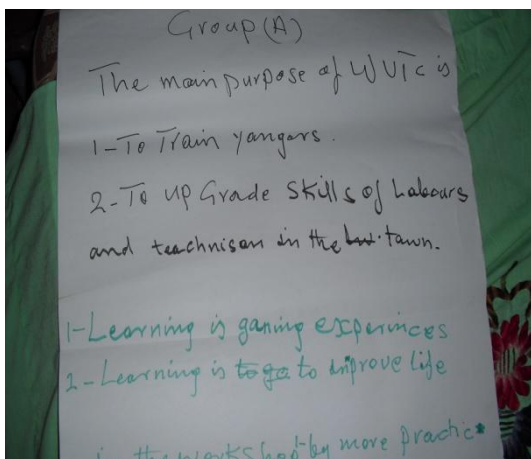 Group (A)
The main purpose of WVTC is
1-To Train yangars.
2-To up Grade skills of Labours
and teachnison in the tawn.
1-Learning is ganing experinces
2-Learning is to go to improve life
in the workshop by more practic